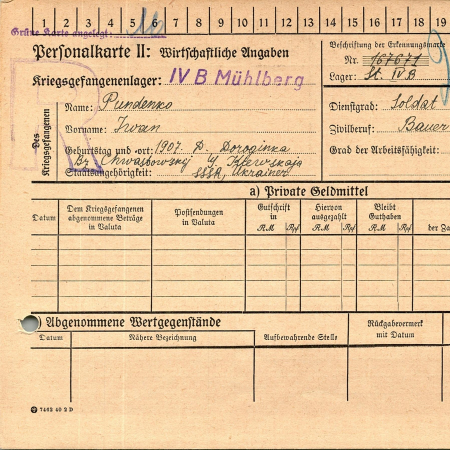 1 2 3 4 5 6 7 8 9 10 11 12 13 14 15 16 17 18 19
Grüne Karte angelegt:
Personalkarte II: Wirtschaftliche Angaben
Beschriftung der Erkennungsmarke
Nr. 167671
Kriegsgefangenenlager: IV B Mühlberg
Lager: St. IV B
Des Kriegsgefangenen
Name: Pundenko
Vorname: Iwan
Geburtstag und -ort: 1907. D. Doroginka
Bz. Chwastowskij G. Kiewskaja
Staatsangehörigkeit: SSSR, Ukrainer
Dienstgrad: Soldat
Zivilberuf: Bauer
Grad der Arbeitsfähigkeit:
a) Private Geldmittel
Datum
Dem Kriegsgefangenen abgenommene Beträge in Valuta
Postsendungen in Valuta
Gutschrift in
RM Rpf
Hiervon ausgezahlt
RM Rpf
Bleibt Guthaben
RM Rpf
der Za
b) Abgenommene Wertgegenstände
Datum
Nähere Bezeichnung
Aufbewahrende Stelle
Rückgabevermerk mit Datum
7462 40 2 D